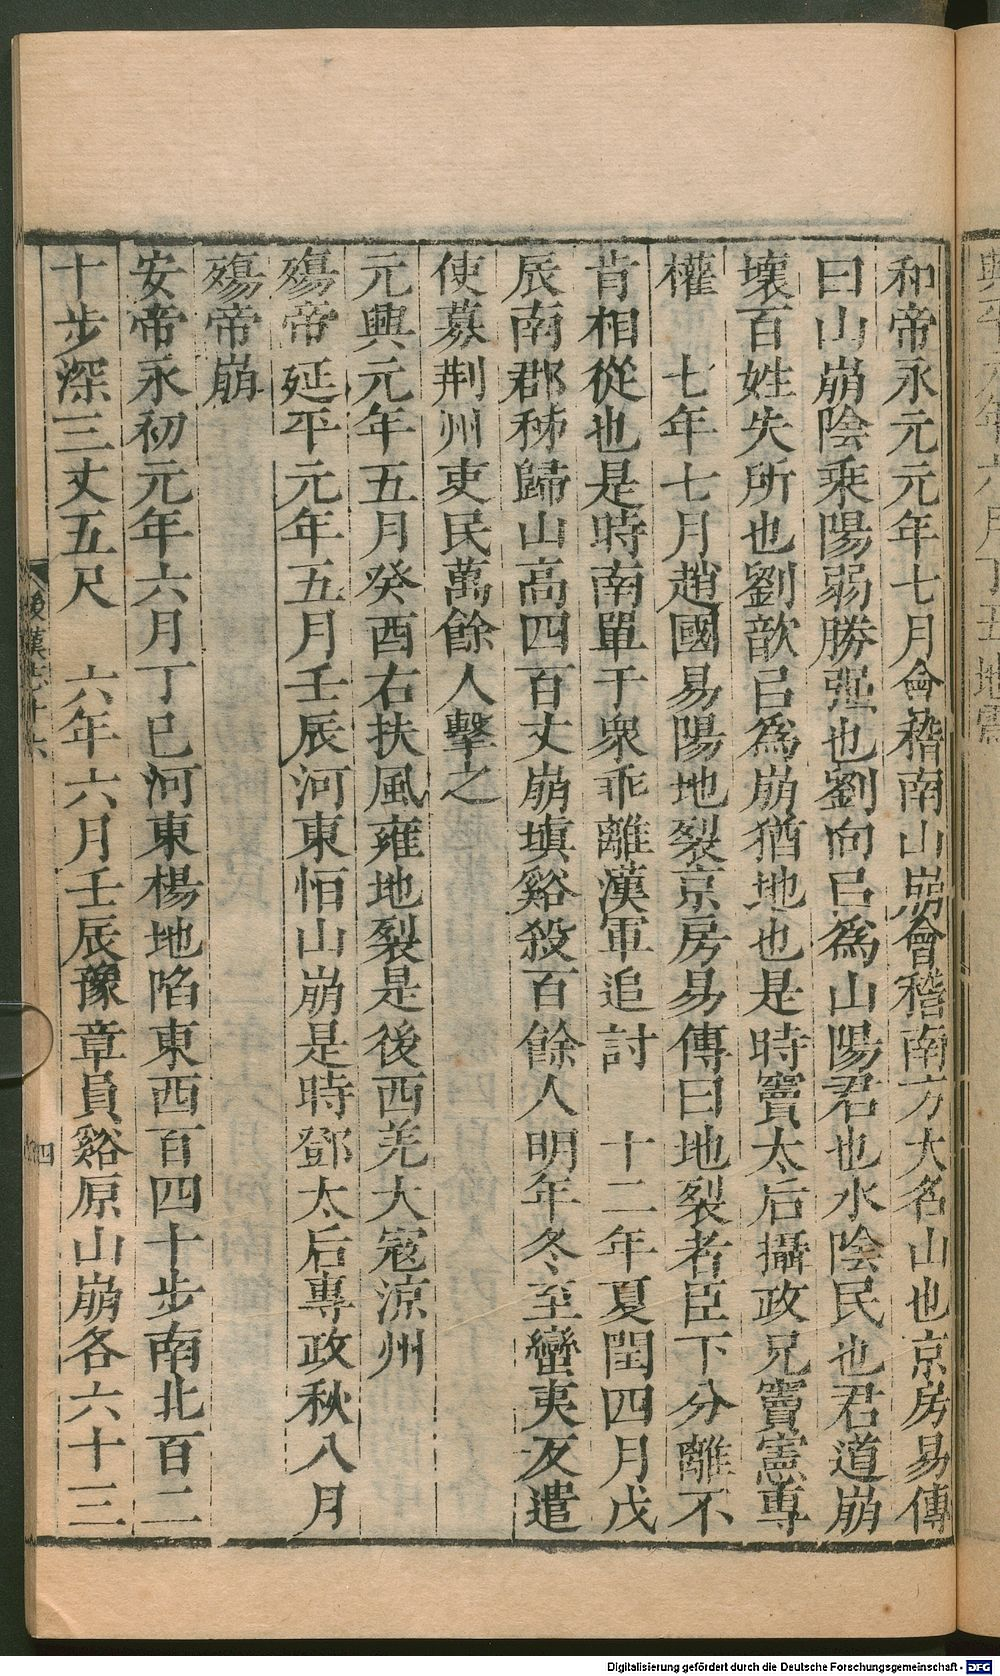 和帝永元元年七月會稽南山崩會稽南方大名山也京房易傳
曰山崩陰乘陽弱勝强也劉向㠯爲山陽君也水陰民也君道崩
壞百姓失所也劉歆㠯爲崩猶地也是時竇太后攝政兄竇憲專
權　七年七月趙國易陽地裂京房易傳曰地裂者臣下分離不
肯相從也是時南單于衆乖離漢軍追討　十二年夏閏四月戊
辰南郡秭歸山高四百丈崩填谿殺百餘人明年冬至蠻夷反遣
使募荆州吏民萬餘人擊之
元興元年五月癸酉右扶風雍地裂是後西羌大寇涼州
殤帝延平元年五月壬辰河東恒山崩是時鄧太后專政秋八月
殤帝崩
安帝永初元年六月丁巳河東楊地陷東西百四十步南北百二
十步深三丈五尺　六年六月壬辰豫章員谿原山崩各六十三
後漢志十六
四
Digitalisierung gefördert durch die Deutsche Forschungsgemeinschaft - DFG